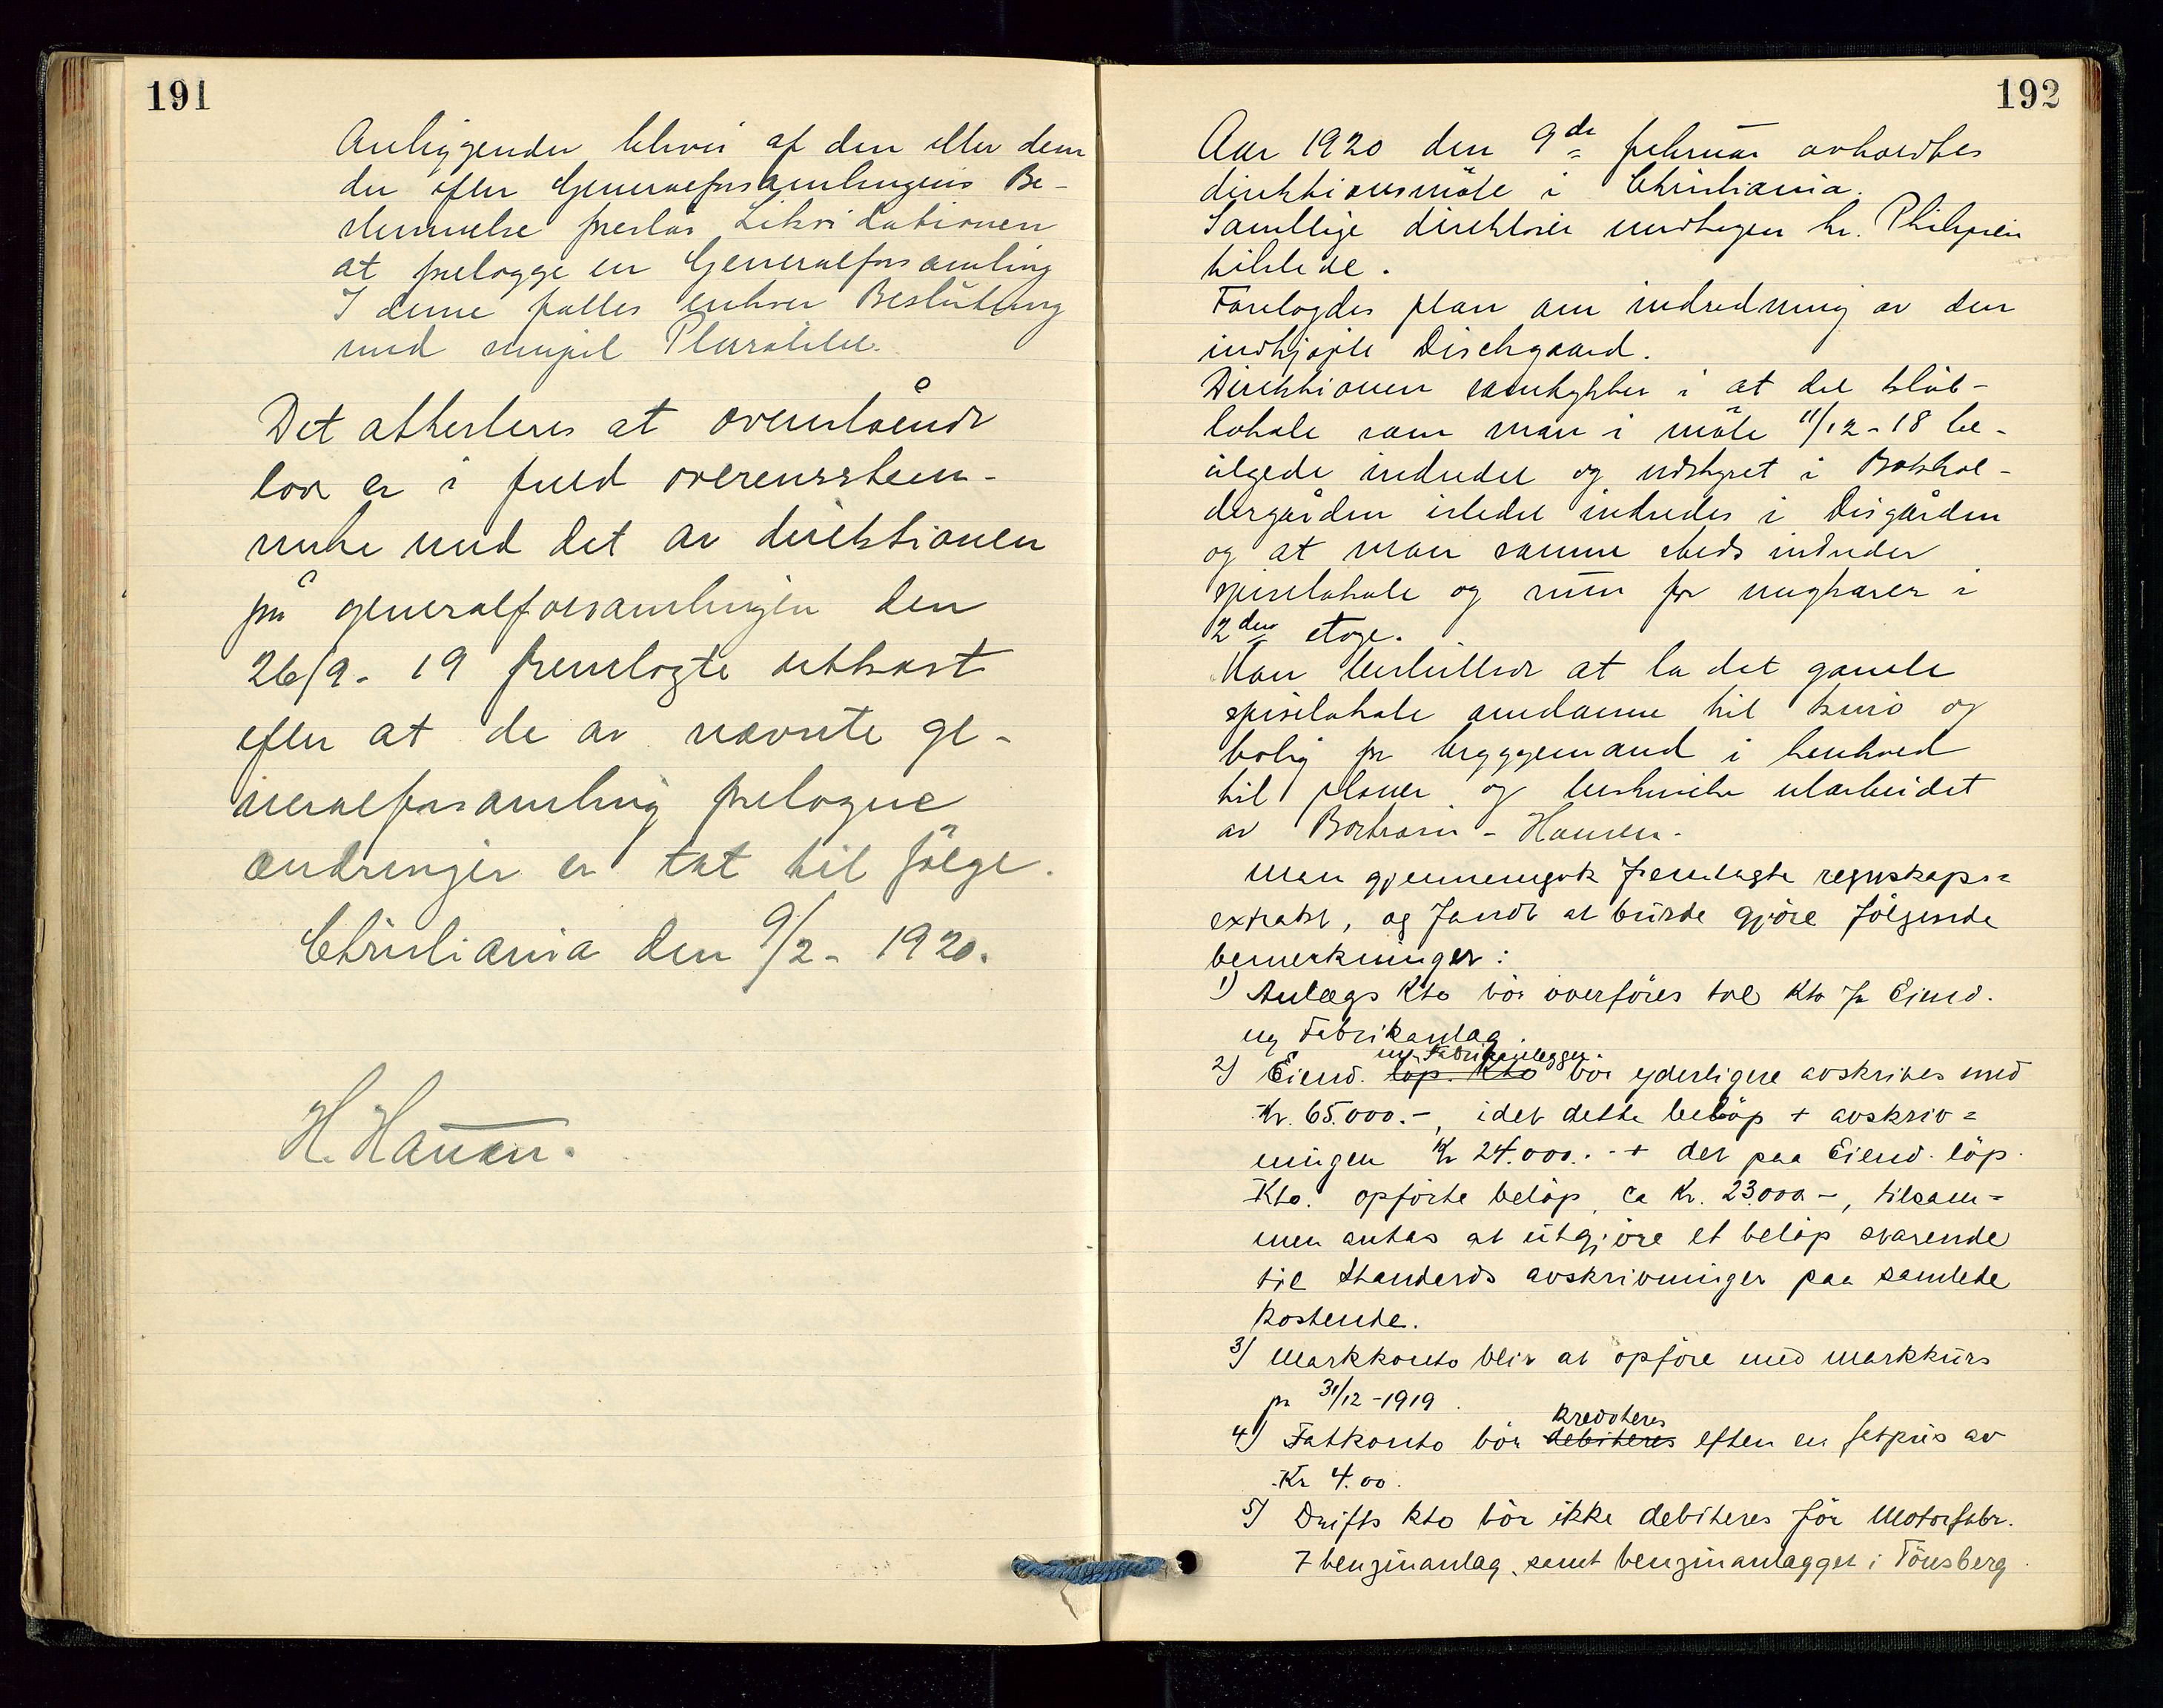 191
Anliggender bliver af den eller dem
der efter Generalforsamlingens Be-
stemmelse forestår Likvidationen
at forelægge en Generalforsamling
I denne fattes enhver Beslutning
med simpel Pluralitet.
Det attesteres at ovenstående
lov er i fuld overensstem-
melse med det av direktionen
på generalforsamlingen den
26/9-19 fremlagte utkast
efter at de av nævnte ge-
neralforsamling forelagne
ændringer er tat til følge.
Christiania den 9/2-1920.
H. Hansen.
192
Aar 1920 den 9de februar avholdtes
direktionsmøte i Christiania.
Samtlige direktører undtagen hr. Philipsen
tilstede.
Forelagdes plan om indredning av den
indkjøpte Dischgaard.
Direktionen samtykker i at det klub-
lokale som man i møte 11/12-18 be-
indredet og utstyret i
dergården istedet indredes i Disgården
og at man samme steds indreder
spiselokale og rum for ungkarer i
2den etage.
Man besluttede at la det gamle
spiselokale omdanne til kontor og
bolig for bryggemand i henhold
til planer og beskrivelse utarbeidet
av - Hansen.
Man gjennemgik fremlagte regnskaps=
extrakt, og fandt at burde gjøre følgende
bemerkninger:
1) Anlægs Kto bør overføres til Kto for Eiend.
og Fabrikanlæg.
og Fabrikanlegget.
2) Eiend. løp. Kto bør yderligere avskrives med
Kr. 65.000.-, idet dette beløp + avskriv=
ningen Kr 24.000.- + det paa Eiend. løp.
Kto. opførte beløp, ca Kr. 23.000-, tilsam=
men antas at utgjøre et beløp svarende
til Standards avskrivninger paa samlede
kostende.
3) Markkonto blir at opføre med markkurs
pr 31/12-1919.
krediteres
4) Fatkonto bør debiteres efter en fatpris av
Kr 4.00.
5) Drifts Kto bør ikke debiteres for Motorfabr.
7 benzinanlæg, samt benzinanlægget i Tønsberg